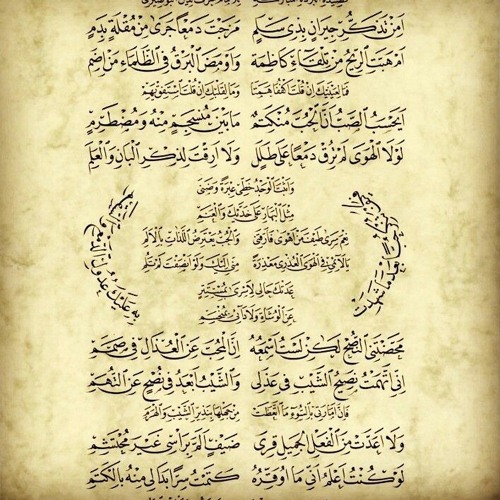 أمن تذكر جيران بذي سلم مزجت دمعا جرى من مقلة بدم
أم هبت الريح من تلقاء كاظمة وأومض البرق في الظلماء من إضم
فما لعينيك إن قلت اكففا همتا وما لقلبك إن قلت استفق يهم
أيحسب الصب أن الحب منكتم ما بين منسجم منه ومضطرم
لولا الهوى لم ترق دمعا على طلل ولا أرقت لذكر البان والعلم
فكيف تنكر حبا بعد ما شهدت
به عليك عدول الدمع والسقم
وأثبت الوجد خطي عبرة وضنى
مثل البهار على خديك والعنم
نعم سرى طيف من أهوى فأرقني والحب يعترض اللذات بالألم
يا لائمي في الهوى العذري معذرة مني إليك ولو أنصفت لم تلم
عدتك حالي لا سري بمستتر
عن الوشاة ولا دائي بمنحسم
محضتني النصح لكن لست أسمعه إن المحب عن العذال في صمم
إني اتهمت نصيح الشيب في عذلي والشيب أبعد في نصح عن التهم
فإن أمارتي بالسوء ما اتعظت من جهلها بنذير الشيب والهرم
ولا أعدت من الفعل الجميل قرى ضيف ألم برأسي غير محتشم
لو كنت أعلم أني ما أوقره كتمت سرا بدا لي منه بالكتم